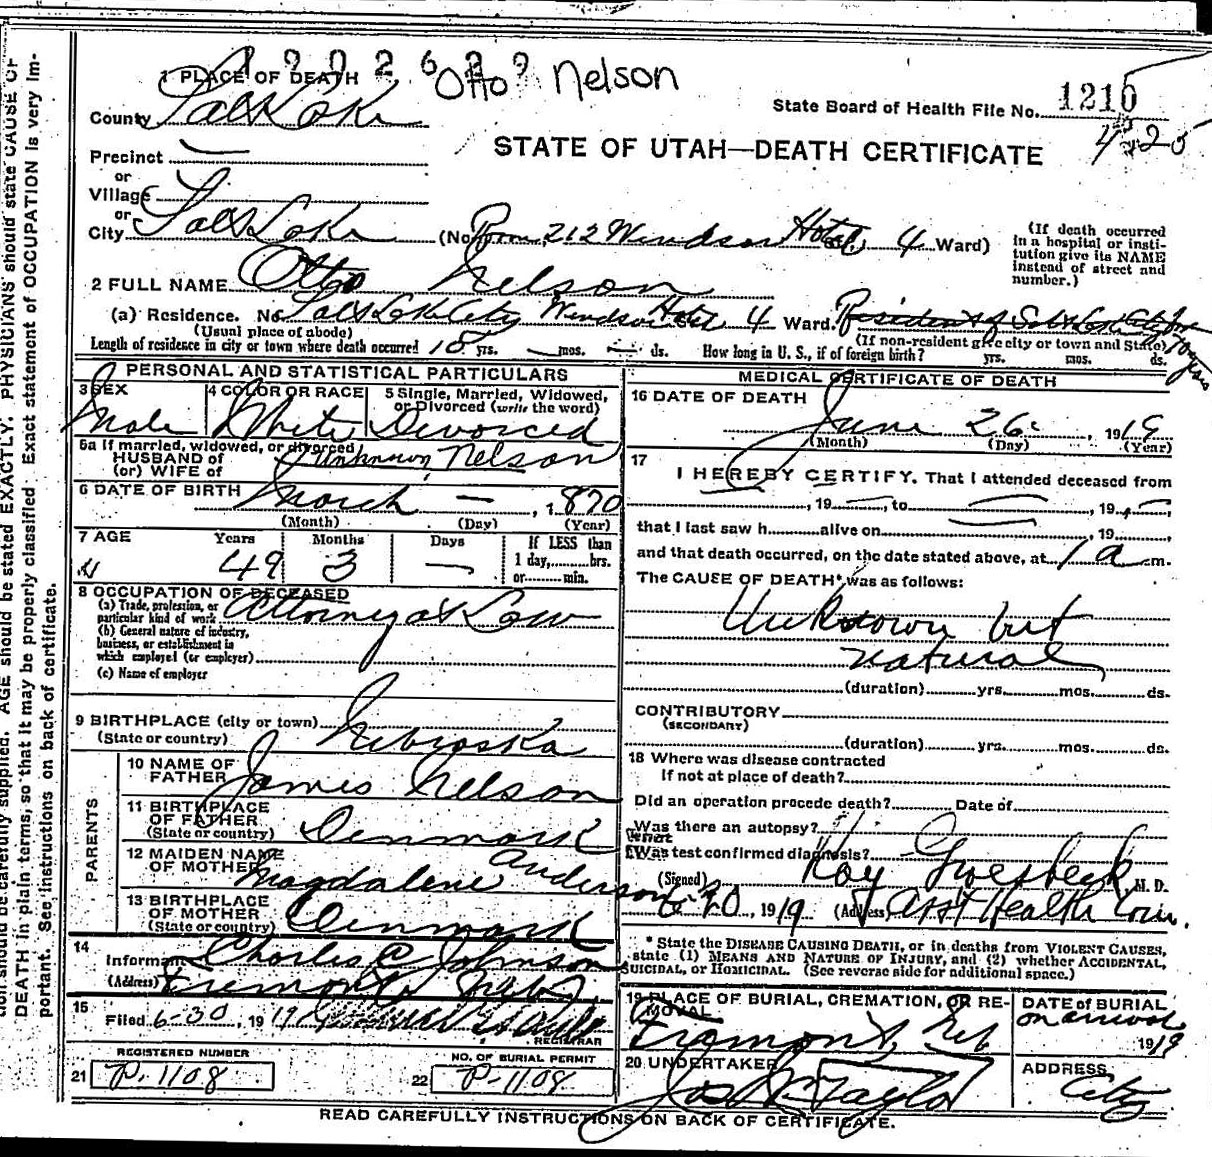 Otto Nelson
1 PLACE OF DEATH
State Board of Health File No. 1210
County Salt Lake
STATE OF UTAH—DEATH CERTIFICATE
Precinct
or
Village
or
City Salt Lake (No. Room 212 Windsor Hotel St. 4 Ward)
(If death occurred in a hospital or insti-
tution give its NAME
instead of street and
number.)
2 FULL NAME Otto Nelson
(a) Residence. No. Salt Lake City Windsor Hotel St. 4 Ward. Resident of Salt Lake City for
(Usual place of abode) (If non-resident give city or town and State)
Length of residence in city or town where death occurred 18 yrs. — mos. — ds. How long in U. S., if of foreign birth? yrs. mos. ds.
PERSONAL AND STATISTICAL PARTICULARS
3 SEX Male
4 COLOR OR RACE White
5 Single, Married, Widowed,
or Divorced (write the word)
Divorced
5a If married, widowed, or divorced
HUSBAND of
(or) WIFE of Unknown Nelson
6 DATE OF BIRTH March — , 1870
(Month) (Day) (Year)
7 AGE Years Months Days If LESS than
49 3 — 1 day,........hrs.
or........min.
8 OCCUPATION OF DECEASED
(a) Trade, profession, or
particular kind of work Attorney at Law
(b) General nature of industry,
business, or establishment in
which employed (or employer)
(c) Name of employer
9 BIRTHPLACE (city or town)
(State or country) Nebraska
PARENTS
10 NAME OF
FATHER James Nelson
11 BIRTHPLACE
OF FATHER
(State or country) Denmark
12 MAIDEN NAME
OF MOTHER Magdalene Anderson
13 BIRTHPLACE
OF MOTHER
(State or country) Denmark
14
Informant Charles @ Johnson
(Address) Fremont Nebr.
15
Filed 6-30, 1919
REGISTRAR
REGISTERED NUMBER
21 P-1108
NO. OF BURIAL PERMIT
22 P-1108
MEDICAL CERTIFICATE OF DEATH
16 DATE OF DEATH
June 26 , 1919
(Month) (Day) (Year)
17
I HEREBY CERTIFY, That I attended deceased from
, 19 , to , 19 ,
that I last saw h........alive on , 19 ,
and that death occurred, on the date stated above, at 1 a m.
The CAUSE OF DEATH* was as follows:
Unknown but
natural
(duration) yrs. mos. ds.
CONTRIBUTORY
(SECONDARY)
(duration) yrs. mos. ds.
18 Where was disease contracted
If not at place of death?
Did an operation precede death? Date of
Was there an autopsy?
What
Was test confirmed diagnosis?
(Signed) Roy Groesbeck, M. D.
, 1919 (Address) Asst Health Com.
* State the DISEASE CAUSING DEATH, or in deaths from VIOLENT CAUSES,
state (1) MEANS AND NATURE OF INJURY, and (2) whether ACCIDENTAL,
SUICIDAL, or HOMICIDAL. (See reverse side for additional space.)
19 PLACE OF BURIAL, CREMATION, OR RE-
MOVAL
Fremont, Neb
DATE of BURIAL
on arrival
1919
20 UNDERTAKER
Jos Wm Taylor
ADDRESS
City
READ CAREFULLY INSTRUCTIONS ON BACK OF CERTIFICATE.
DEATH in plain terms, so that it may be properly classified. Exact statement of OCCUPATION is very im-
portant. See instructions on back of certificate.